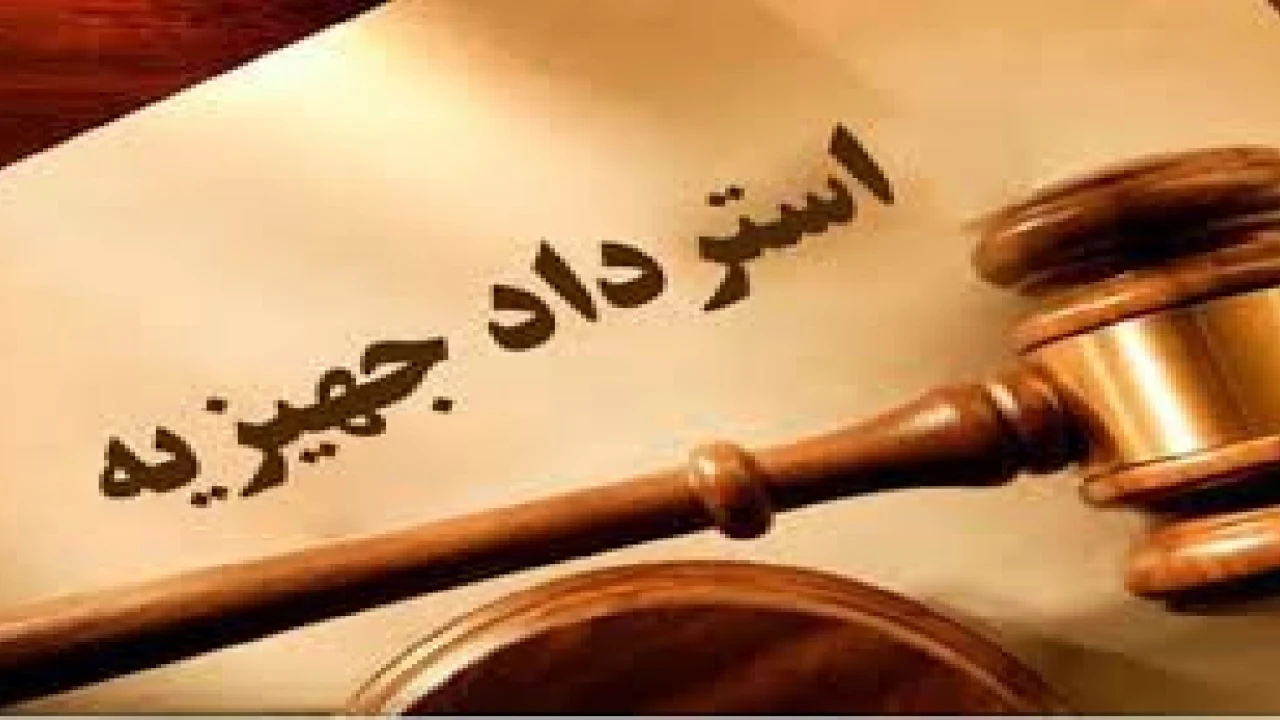 استرداد جهیزیه